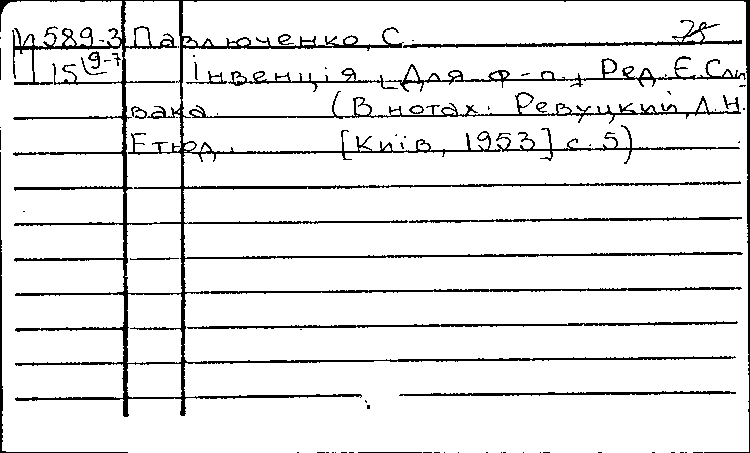 М 589-3 Павлюченко, С.
П 15 9-7 Інвенція [Для ф-п.] Ред. Є. Сли
вака. (В нотах: Ревуцкий, Л.Н.
Етюд. [Київ, 1953] с. 5)